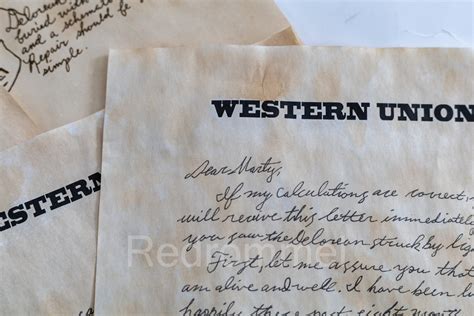 Delorean
buried with
and a schemat
Repair should be
simple.
WESTERN UNION
ESTERN
Dear Marty,
If my calculations are correct,
will receive this letter immediately
you saw the Delorean struck by lig
First, let me assure you that
am alive and well. I have been l
happily these past eight
Redrammel